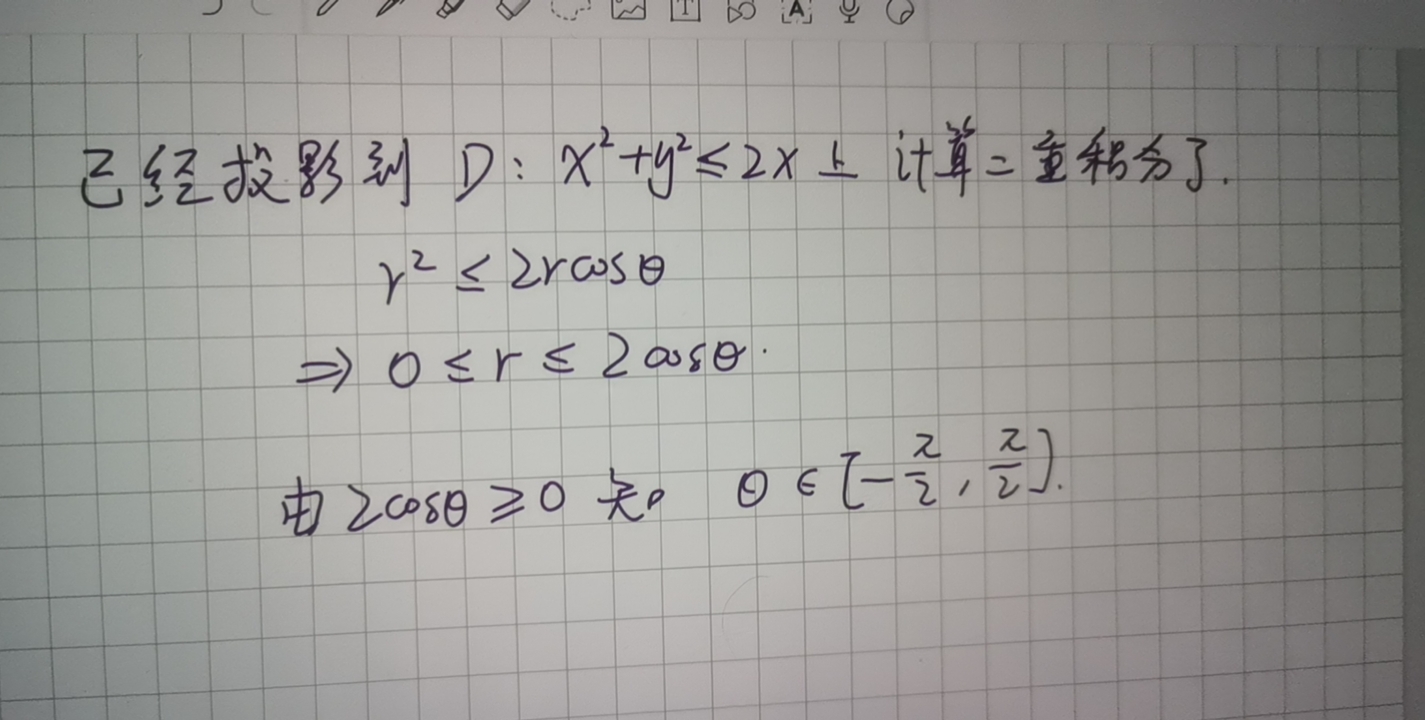 已经投影到 D: x²+y²≤2x 上 计算二重积分了.
r² ≤ 2rcosθ
⇒ 0 ≤ r ≤ 2cosθ.
由 2cosθ ≥ 0 知 θ ∈ [-π/2, π/2].